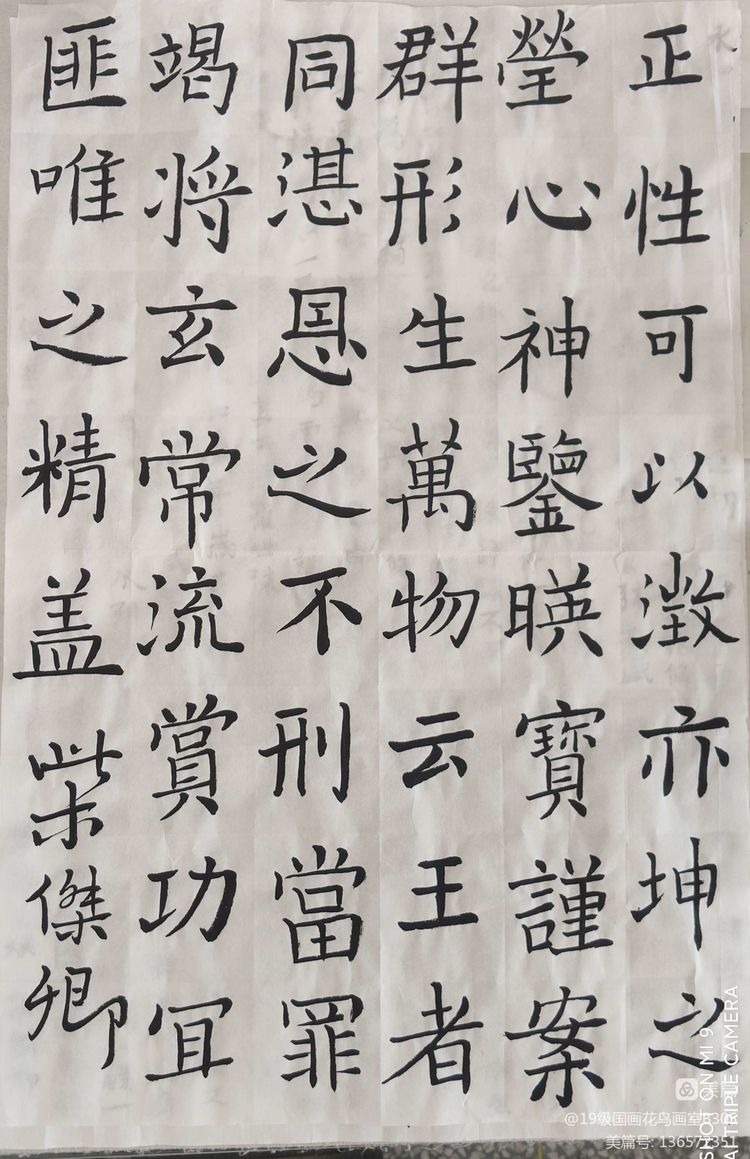 正性可以澂亦坤之
瑩心神鑒暎寶謹案
群形生萬物云王者
同湛恩之不刑當罪
竭將玄常流賞功冝
匪唯之精盖柴傑卿
SHOT ON MI 9
AI TRIPLE CAMERA
@19级国画花鸟画室
美篇号: 136572351